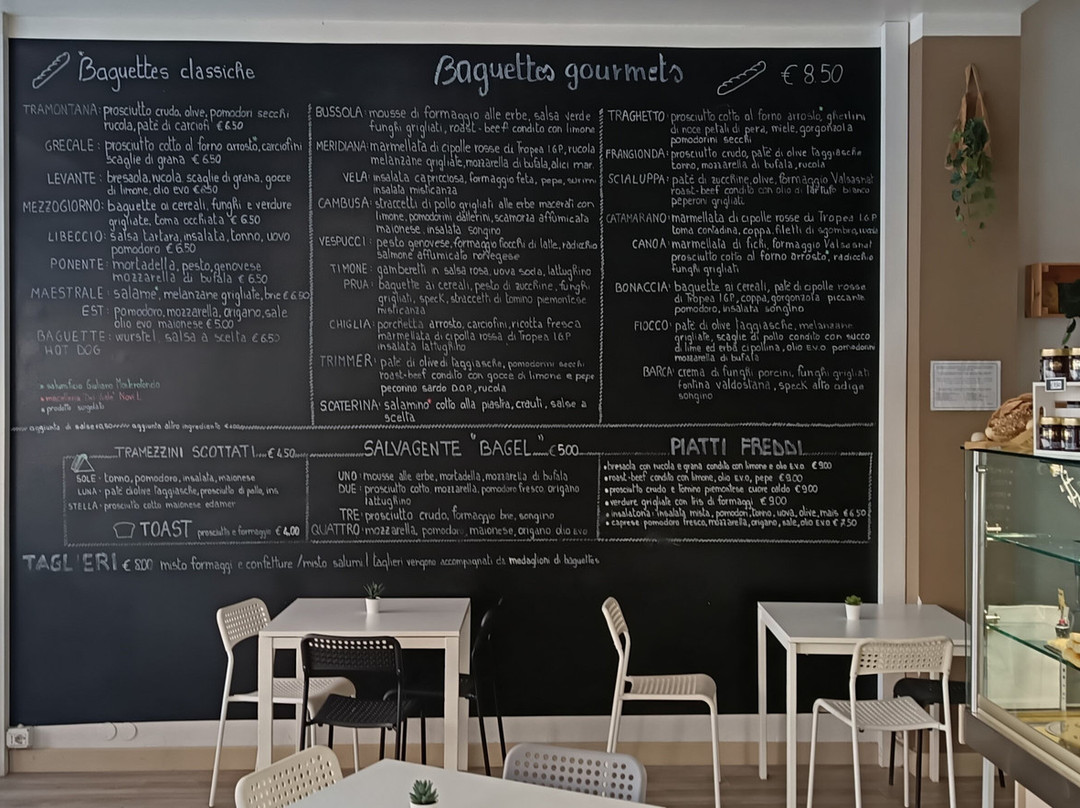 Baguettes classiche
TRAMONTANA: prosciutto crudo, olive, pomodori secchi
rucola, patè di carciofi € 6.50
GRECALE: prosciutto cotto al forno arrosto*, carciofini
scaglie di grana € 6.50
LEVANTE: bresaola, rucola, scaglie di grana, gocce
di limone, olio evo € 6.50
MEZZOGIORNO: baguette ai cereali, funghi e verdure
grigliate, toma occhiata € 6.50
LIBECCIO: salsa tartara, insalata, tonno, uovo
pomodoro € 6.50
PONENTE: mortadella, pesto, genovese
mozzarella di bufala € 6.50
MAESTRALE: salame*, melanzane grigliate, brie € 6.50
EST: pomodoro, mozzarella, origano, sale
olio evo maionese € 5.00
BAGUETTE: wurstel, salsa a scelta € 6.50
HOT DOG
• salumificio Giuliano
• macelleria Novi L.
• prodotto surgelato
Baguettes gourmets € 8.50
BUSSOLA: mousse di formaggio alle erbe, salsa verde
funghi grigliati, roast-beef condito con limone
MERIDIANA: marmellata di cipolle rosse di Tropea I.G.P, rucola
melanzane grigliate, mozzarella di bufala, alici mar.
VELA: insalata capricciosa, formaggio feta, pepe, surimi
insalata misticanza
CAMBUSA: straccetti di pollo grigliati alle erbe macerati con
limone, pomodorini datterini, scamorza affumicata
maionese, insalata songino
VESPUCCI: pesto genovese, formaggio fiocchi di latte, radicchio
salmone affumicato norvegese
TIMONE: gamberetti in salsa rosa, uova soda, lattughino
PRUA: baguette ai cereali, pesto di zucchine, funghi
grigliati, speck, straccetti di tomino piemontese
misticanza
CHIGLIA: porchetta arrosto, carciofini, ricotta fresca
marmellata di cipolla rossa di Tropea I.G.P
insalata lattughino
TRIMMER: patè di olive di taggiasche, pomodorini secchi
roast-beef condito con gocce di limone e pepe
pecorino sardo D.O.P., rucola
SCATERINA: salamino* cotto alla piastra, crauti, salse a
scelta
TRAGHETTO: prosciutto cotto al forno arrosto*, gherlini
di noce petali di pera, miele, gorgonzola
pomodorini secchi
FRANGIONDA: prosciutto crudo, patè di olive taggiasche
tonno, mozzarella di bufala, rucola
SCIALUPPA: patè di zucchine, olive, formaggio Valsasnat
roast-beef condito con olio di tartufo bianco
peperoni grigliati
CATAMARANO: marmellata di cipolle rosse di Tropea I.G.P
toma contadina, coppa, filetti di sgombro,
CANOA: marmellata di fichi, formaggio Valsasnat
prosciutto cotto al forno arrosto*, radicchio
funghi grigliati
BONACCIA: baguette ai cereali, patè di cipolle rosse
di Tropea I.G.P, coppa, gorgonzola piccante
pomodoro, insalata songino
FIOCCO: patè di olive taggiasche, melanzane
grigliate, scaglie di pollo condito con succo
di lime ed erba cipollina, olio E.v.o pomodorini
mozzarella di bufala
BARCA: crema di funghi porcini, funghi grigliati
fontina valdostana, speck alto adige
songino
aggiunta di salse aggiunta altro ingrediente
TRAMEZZINI SCOTTATI....€ 4.50
SOLE: tonno, pomodoro, insalata, maionese
LUNA: patè di olive taggiasche, prosciutto di pollo, ins
STELLA: prosciutto cotto maionese edamer
TOAST prosciutto e formaggio € 4,00
SALVAGENTE "BAGEL"....€ 5.00
UNO: mousse alle erbe, mortadella, mozzarella di bufala
DUE: prosciutto cotto, mozzarella, pomodoro fresco, origano
lattughino
TRE: prosciutto crudo, formaggio brie, songino
QUATTRO: mozzarella, pomodoro, maionese, origano olio evo
PIATTI FREDDI
• bresaola con rucola e grana condita con limone e olio E.v.o. € 9.00
• roast-beef condito con limone, olio E.v.o, pepe € 9.00
• prosciutto crudo e tomino piemontese cuore caldo € 9.00
• verdure grigliate con tris di formaggi € 9.00
• insalatona: insalata mista, pomodori, tonno, uova, olive, mais € 6.50
• caprese pomodoro fresco, mozzarella, origano, sale, olio E.v.o € 7.50
TAGLIERI € 8.00 misto formaggi e confetture / misto salumi I taglieri vengono accompagnati da medaglioni di baguettes